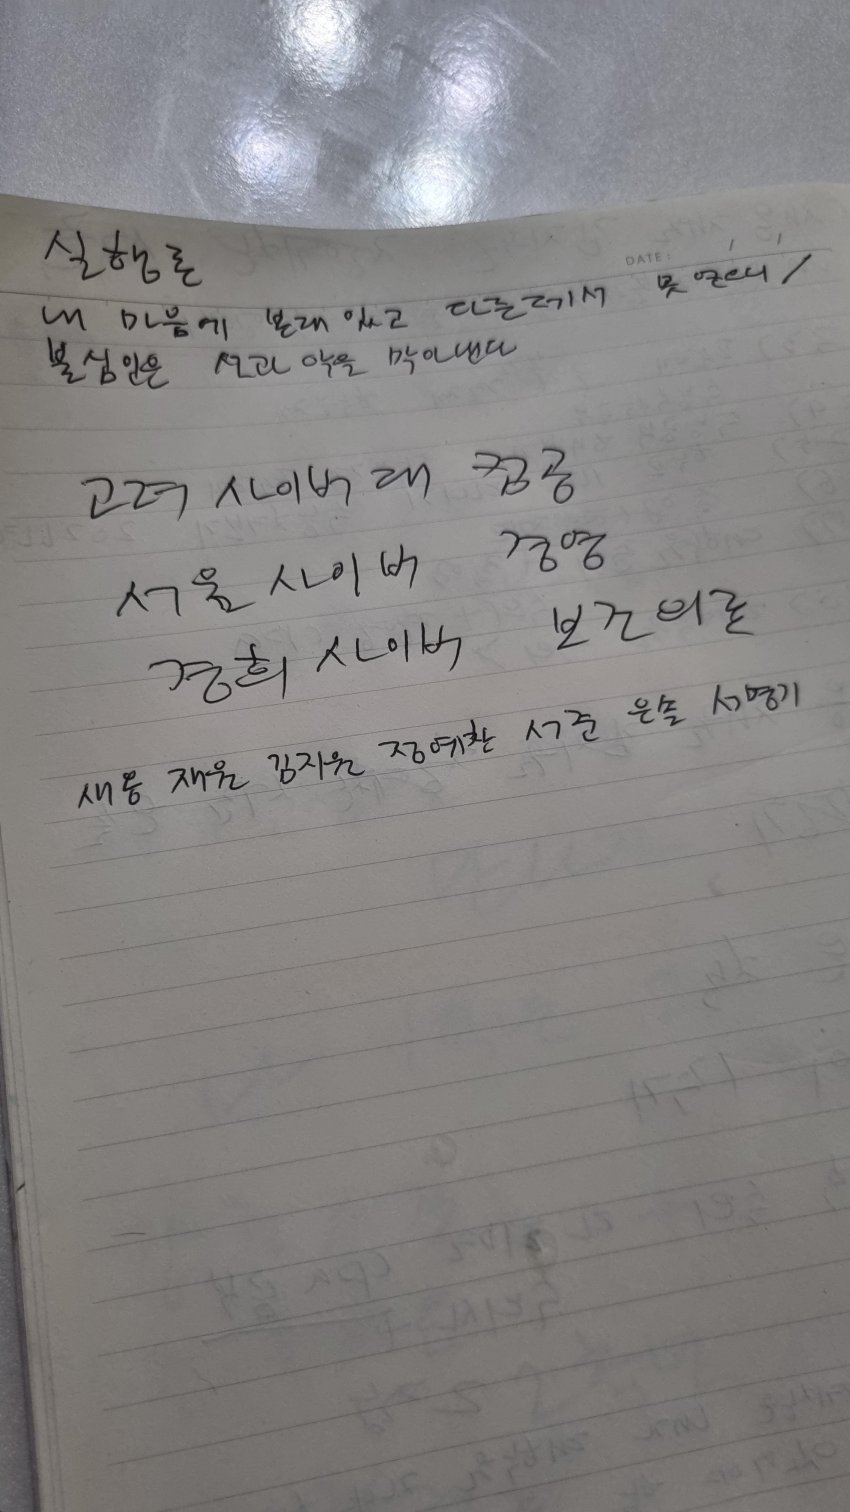 실행론
DATE:
내 마음에 본래 있고 다른데서 못 얻으니 /
불심인은 선과 악을 막아낸다
고려 사이버대 컴공
서울 사이버 경영
경희 사이버 보건의료
새롬 재윤 김지윤 정예찬 서준 은솔 서명기